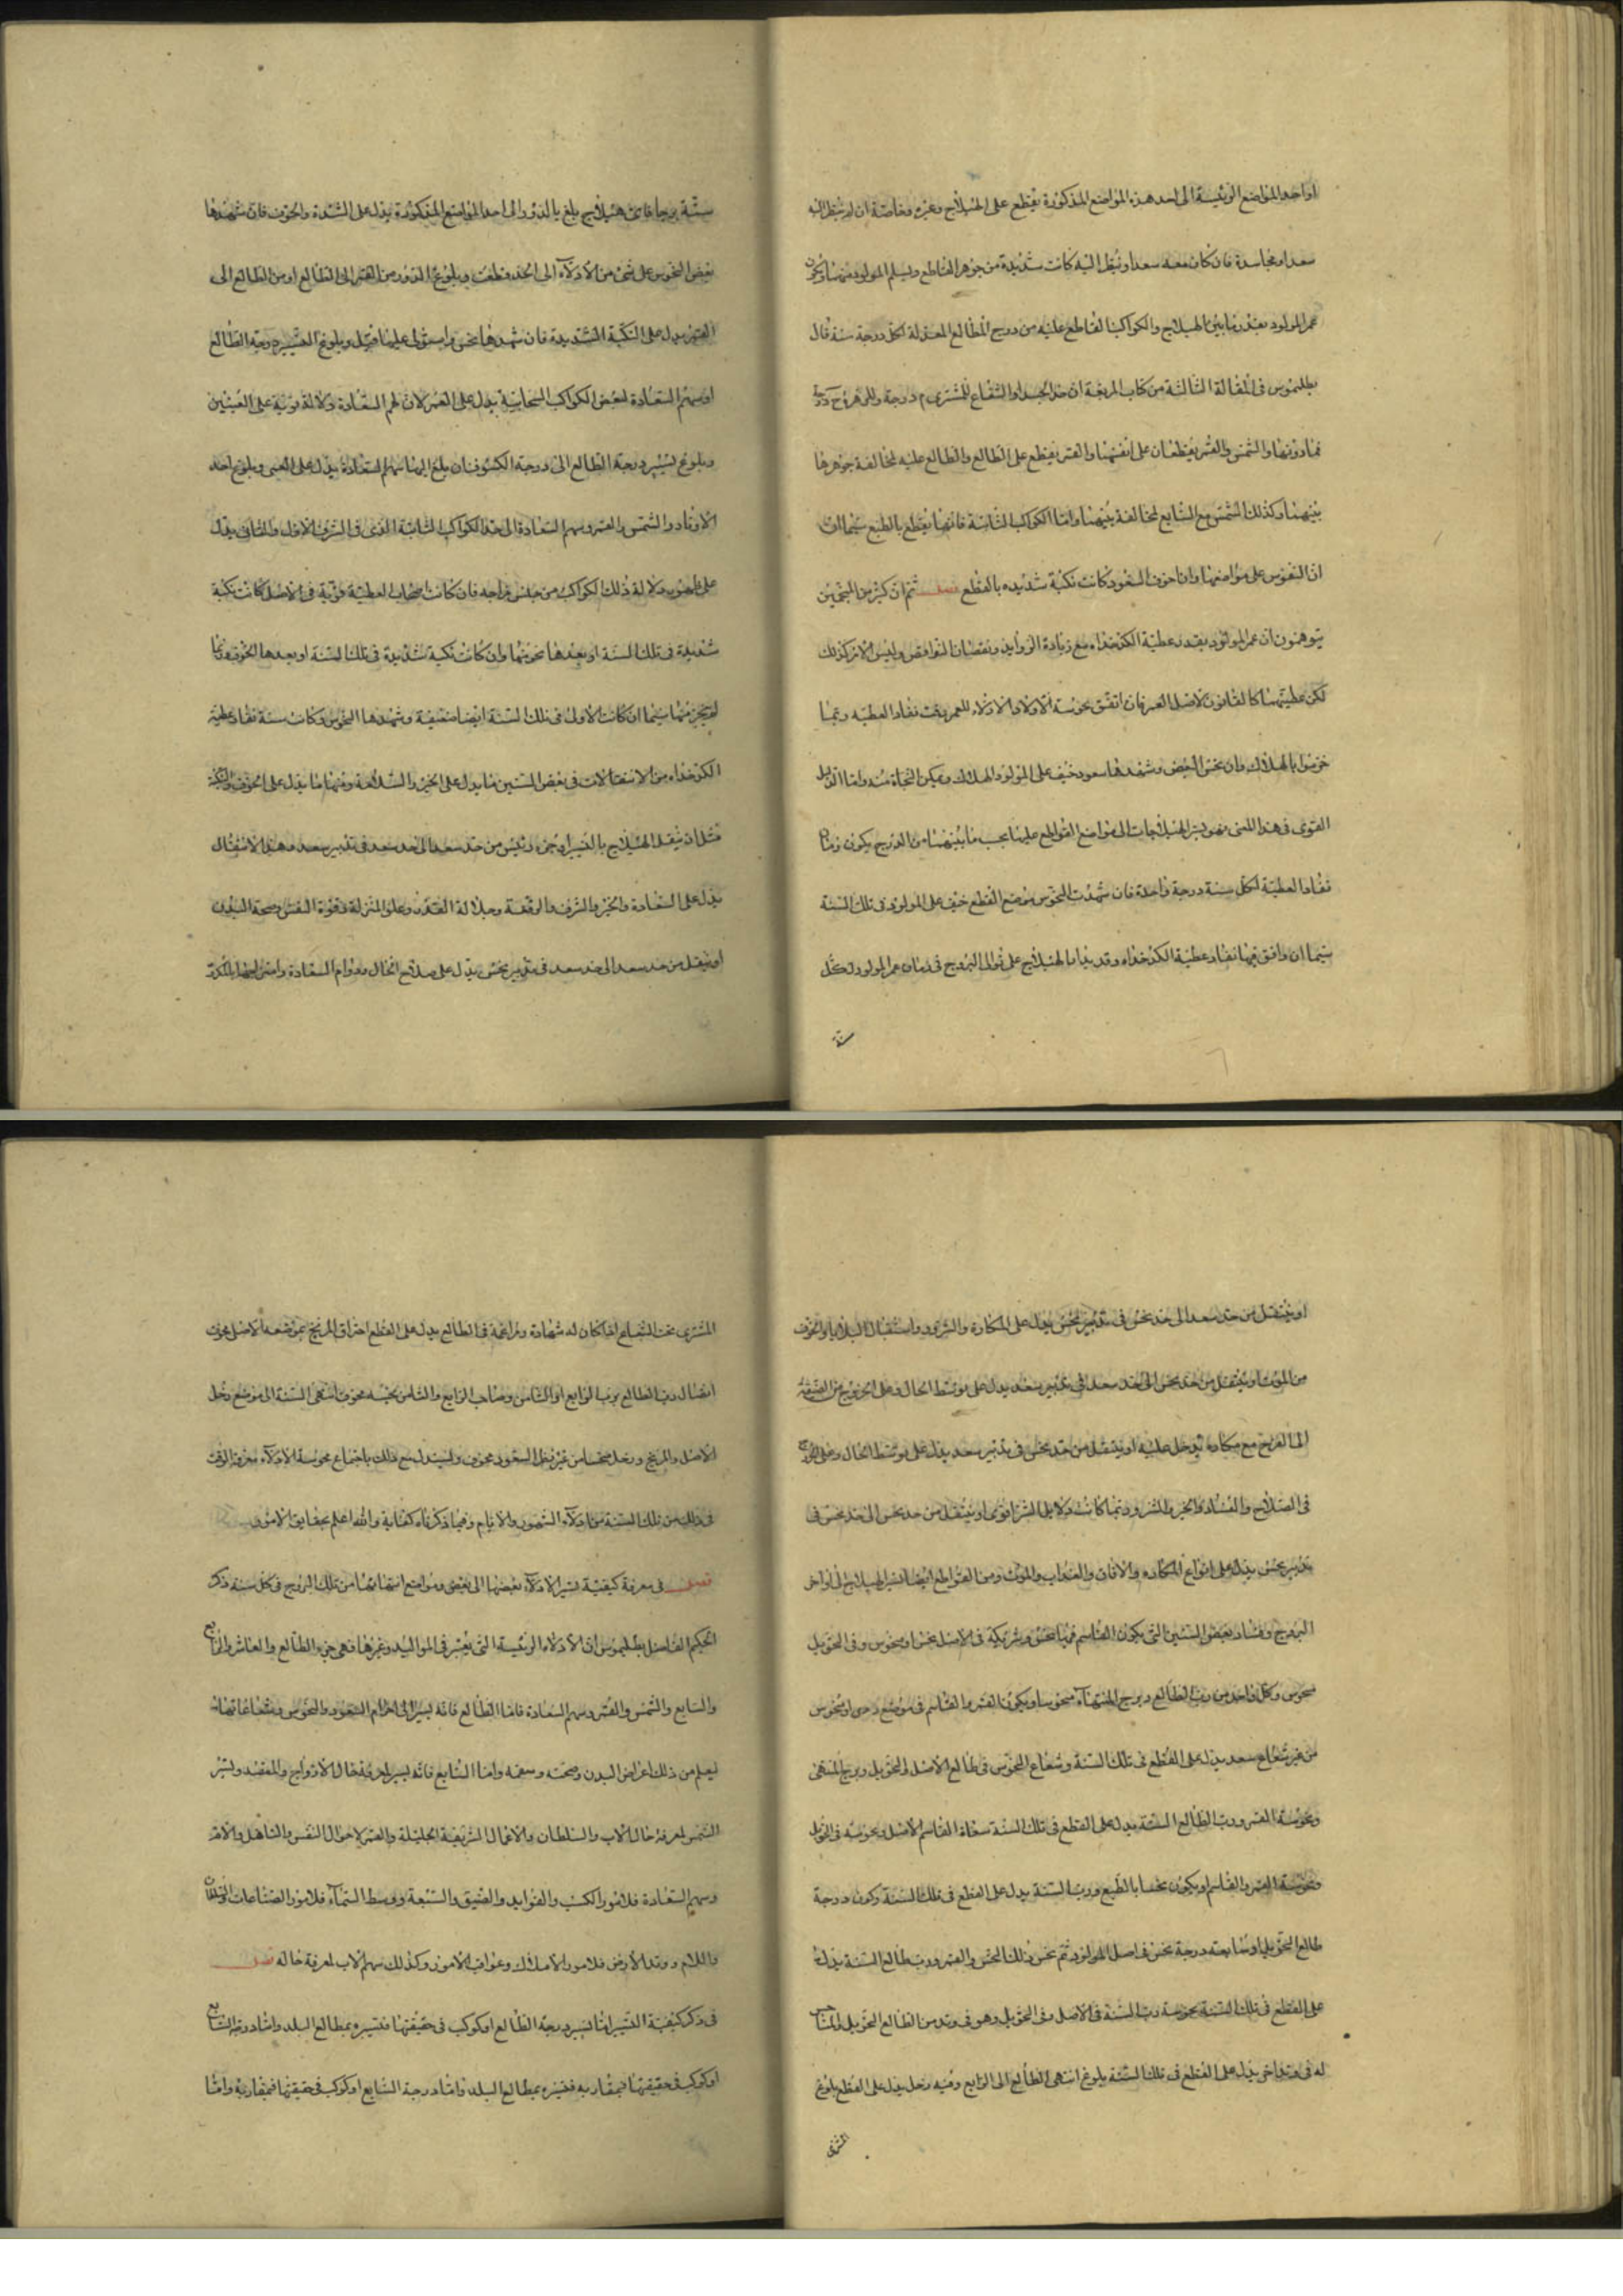 او احد المواضع الرئيسة الى احد هذه المواضع المذكورة يقطع على الهيلاج وغيره وخاصة ان لم ينظر اليه
سعد او مجاسدة فان كان معه سعد او نظر اليه كانت شديدة من جوهر القاطع ويسلم المولود منها ويكون
عمر المولود بقدر ما بين الهيلاج والكواكب القاطع عليه من درج المطالع المعدلة لكل درجة سنة قال
بطلميوس في المقالة الثالثة من كتاب الاربعة ان حد الجسد او الشعاع للمشترى م درجة وللزهرة ح درجة
فما دونها والشمس والقمر يقطعان على انفسهما والقمر يقطع على الطالع والطالع عليه لمخالفة جوهرها
بينهما وكذلك الشمس مع السابع لمخالفة بينهما واما الكواكب الثابتة فانها يقطع بالطبع سيما ان
ان النحوس على مواضعها وان احوف السعود كانت نكبة شديده بالقطع فصل ثم ان كثير من المنجمين
يتوهمون ان عمر المولود بقدر عطية الكدخداه مع زيادة الزوايد ونقصان النواقص وليس الامر كذلك
لكن عطيتهما كالقانون لاصل العمر فان اتفق نحوسة الاولاد والادلاء للعمر وقت نفاد العطيه ربما
خوضوا بالهلاك وان نحس البعض وشهدها سعود خيف على المولود الهلاك ويمكن النجاة منه واما الدليل
القوى في هذا المعنى فهو يسير الهيلاجات الى مواضع القواطع عليها بحسب ما بينهما من الدرج يكون زمان
نفاد العطية لكل سنة درجة واحدة فان شهدت النحوس بموضع القطع خيف على المولود في تلك السنة
سيما ان وافق فيها نفاد عطية الكدخداه وقد يدار الهيلاج على توالى البروج في زمان عمر المولود لكل
سنة
سنة برجا فاى هيلاج بلغ بالدور الى احد المواضع المذكورة يدل على الشدة والخوف فان شهدها
بعض النحوس على شئ من الادلاء الى الحد قطعت وبلوغ الدور من القمر الى الطالع او من الطالع الى
القمر يدل على النكبة الشديدة فان شهدها نحس واستولى عليها قتل وبلوغ التسيير درجة الطالع
او سهم السعادة لبعض الكواكب السحابية يدل على العمى لان لهم السعادة دلالة قوية على العينين
وبلوغ تسيير درجة الطالع الى درجة الكسوف ان بلغ اليها سهم السعادة يدل على العمى وبلوغ احد
الاوتاد والشمس والقمر وسهم السعادة الى حد الكواكب الثابتة الذى في الشرف الاول والثانى يدل
على ظهور دلالة ذلك الكواكب من جنس مزاجه فان كانت اصحاب العطية قوية في الاصل كانت نكبة
شديدة في تلك السنة او بعدها نحوستها وان كانت نكبة شديدة في تلك السنة او بعدها الخوف وربما
لم ينج منها سيما ان كانت الاول في تلك السنة ايضا ضعيفة وشهدها النحوس وكانت سنة نفاد عطية
الكدخداه من الانتقالات في بعض السنين ما يدل على الخير والسلامة ومنها ما يدل على الخوف والنكبة
مثل ان ينتقل الهيلاج بالتسيير او جزء رئيس من حد سعد الى حد سعد في تدبير سعد وهذا الانتقال
يدل على السعادة والخير والشرف والرفعة وجلالة القدر وعلو المنزلة وقوة النفس وصحة البدن
او ينتقل من حد سعد الى حد سعد في تدبير نحس يدل على صلاح الحال ودوام السعادة
او ينتقل من حد سعد الى حد نحس في تدبير نحس يدل على المكاره والشرور واستقبال البلايا والخوف
من الموت او ينتقل من حد نحس الى حد سعد في تدبير سعد يدل على توسط الحال وعلى الخروج من الضيقة
الى الفرح مع مكاره يدخل عليه او ينتقل من حد نحس في تدبير سعد يدل على توسط الحال وعلى
في الصلاح والفساد والخير والشر وربما كانت دلايل الشر اقوى او ينتقل من حد نحس الى حد نحس في
تدبير نحس يدل على انواع المكاره والافات والعذاب والموت ومن القواطع ايضا تسير الهيلاج الى اواخر
البروج وفساد بعض السنين التي يكون القاسم فيها نحس وشريكه في الاصل نحس او منحوس وفي التحويل
منحوس وكل واحد من رب الطالع وبرج المنتهاء منحوسا ويكون القمر والقاسم في موضع ردى او منحوس
من غير شعاع سعد يدل على القطع في تلك السنة وشعاع النحوس في طالع الاصل والتحويل وبرج المنتهى
ونحوسة القمر ورب الطالع السنة يدل على القطع في تلك السنة القاسم الاصل ونحوسته في التحويل
ونحوسة القمر والقاسم او يكون نحسا بالطبع ورب السنة يدل على القطع في تلك السنة وكون درجة
طالع التحويل او سابعه درجة نحس في اصل المولود ثم نحس ذلك النحس والقمر ورب طالع السنة يدل
على القطع في تلك السنة نحوسة رب السنة في الاصل وفى التحويل وهو في وتد من الطالع التحويل والمناحس
له في وتد اخر يدل على القطع في تلك السنة بلوغ انتهى الطالع الى الرابع وفيه زحل يدل على القطع بلوغ
المشترى
المشترى تحت الشعاع اذا كان له شهادة ومزاعمة في الطالع يدل على القطع احتراق المريخ بموضعه الاصل مخوف
اتصال رب الطالع برب الرابع او الثامن وصاحب الرابع والثامن نحسه مخوف انتهى السنة الى موضع زحل
الاصل والمريخ وزحل من غير نظر السعود مخوف وليستدل مع ذلك باجتماع نحوسة الادلاء معرفة الوقت
في ذلك من تلك السنة من ادلاء الشهور والايام وفيما ذكرناه كفاية والله اعلم بحقايق الامور
فصل في معرفة كيفية تسير الادلاء بعضها الى بعض ومواضع انتهائها من تلك البروج في كل سنة ذكر
الحكيم الفاضل بطلميوس ان الادلاء الرئيسة التي يعتبر في المواليد وغيرها فهى جزء الطالع والعاشر والرابع
والسابع والشمس والقمر وسهم السعادة فاما الطالع فانه يسير الى اجرام السعود والنحوس وشعاعاتها
ليعلم من ذلك اعراض البدن وصحته وسقمه واما السابع فانه يسير لمعرفة حال الازواج والمقصد وتسير
الشمس لمعرفة حال الاب والسلطان والاعمال الشريفة الجليلة والقمر لاحوال النفس والتاهل والام
وسهم السعادة فلامور الكسب والفوايد والضيق والسعة ووسط السماء فلامور الصناعات والسلطان
واللام ووتد الارض فلامور الاملاك وعواقب الامور وكذلك سهم الاب لمعرفة حاله فصل
في ذكر كيفية التسيير اما تسير درجة الطالع او كوكب في حقيقتها فتسيره بمطالع البلد واما درجة السابع
او كوكب في حقيقتها فبمغاربه فتسيره بمطالع البلد واما درجة السابع او كوكب في حقيقتها فبمغاربه واما